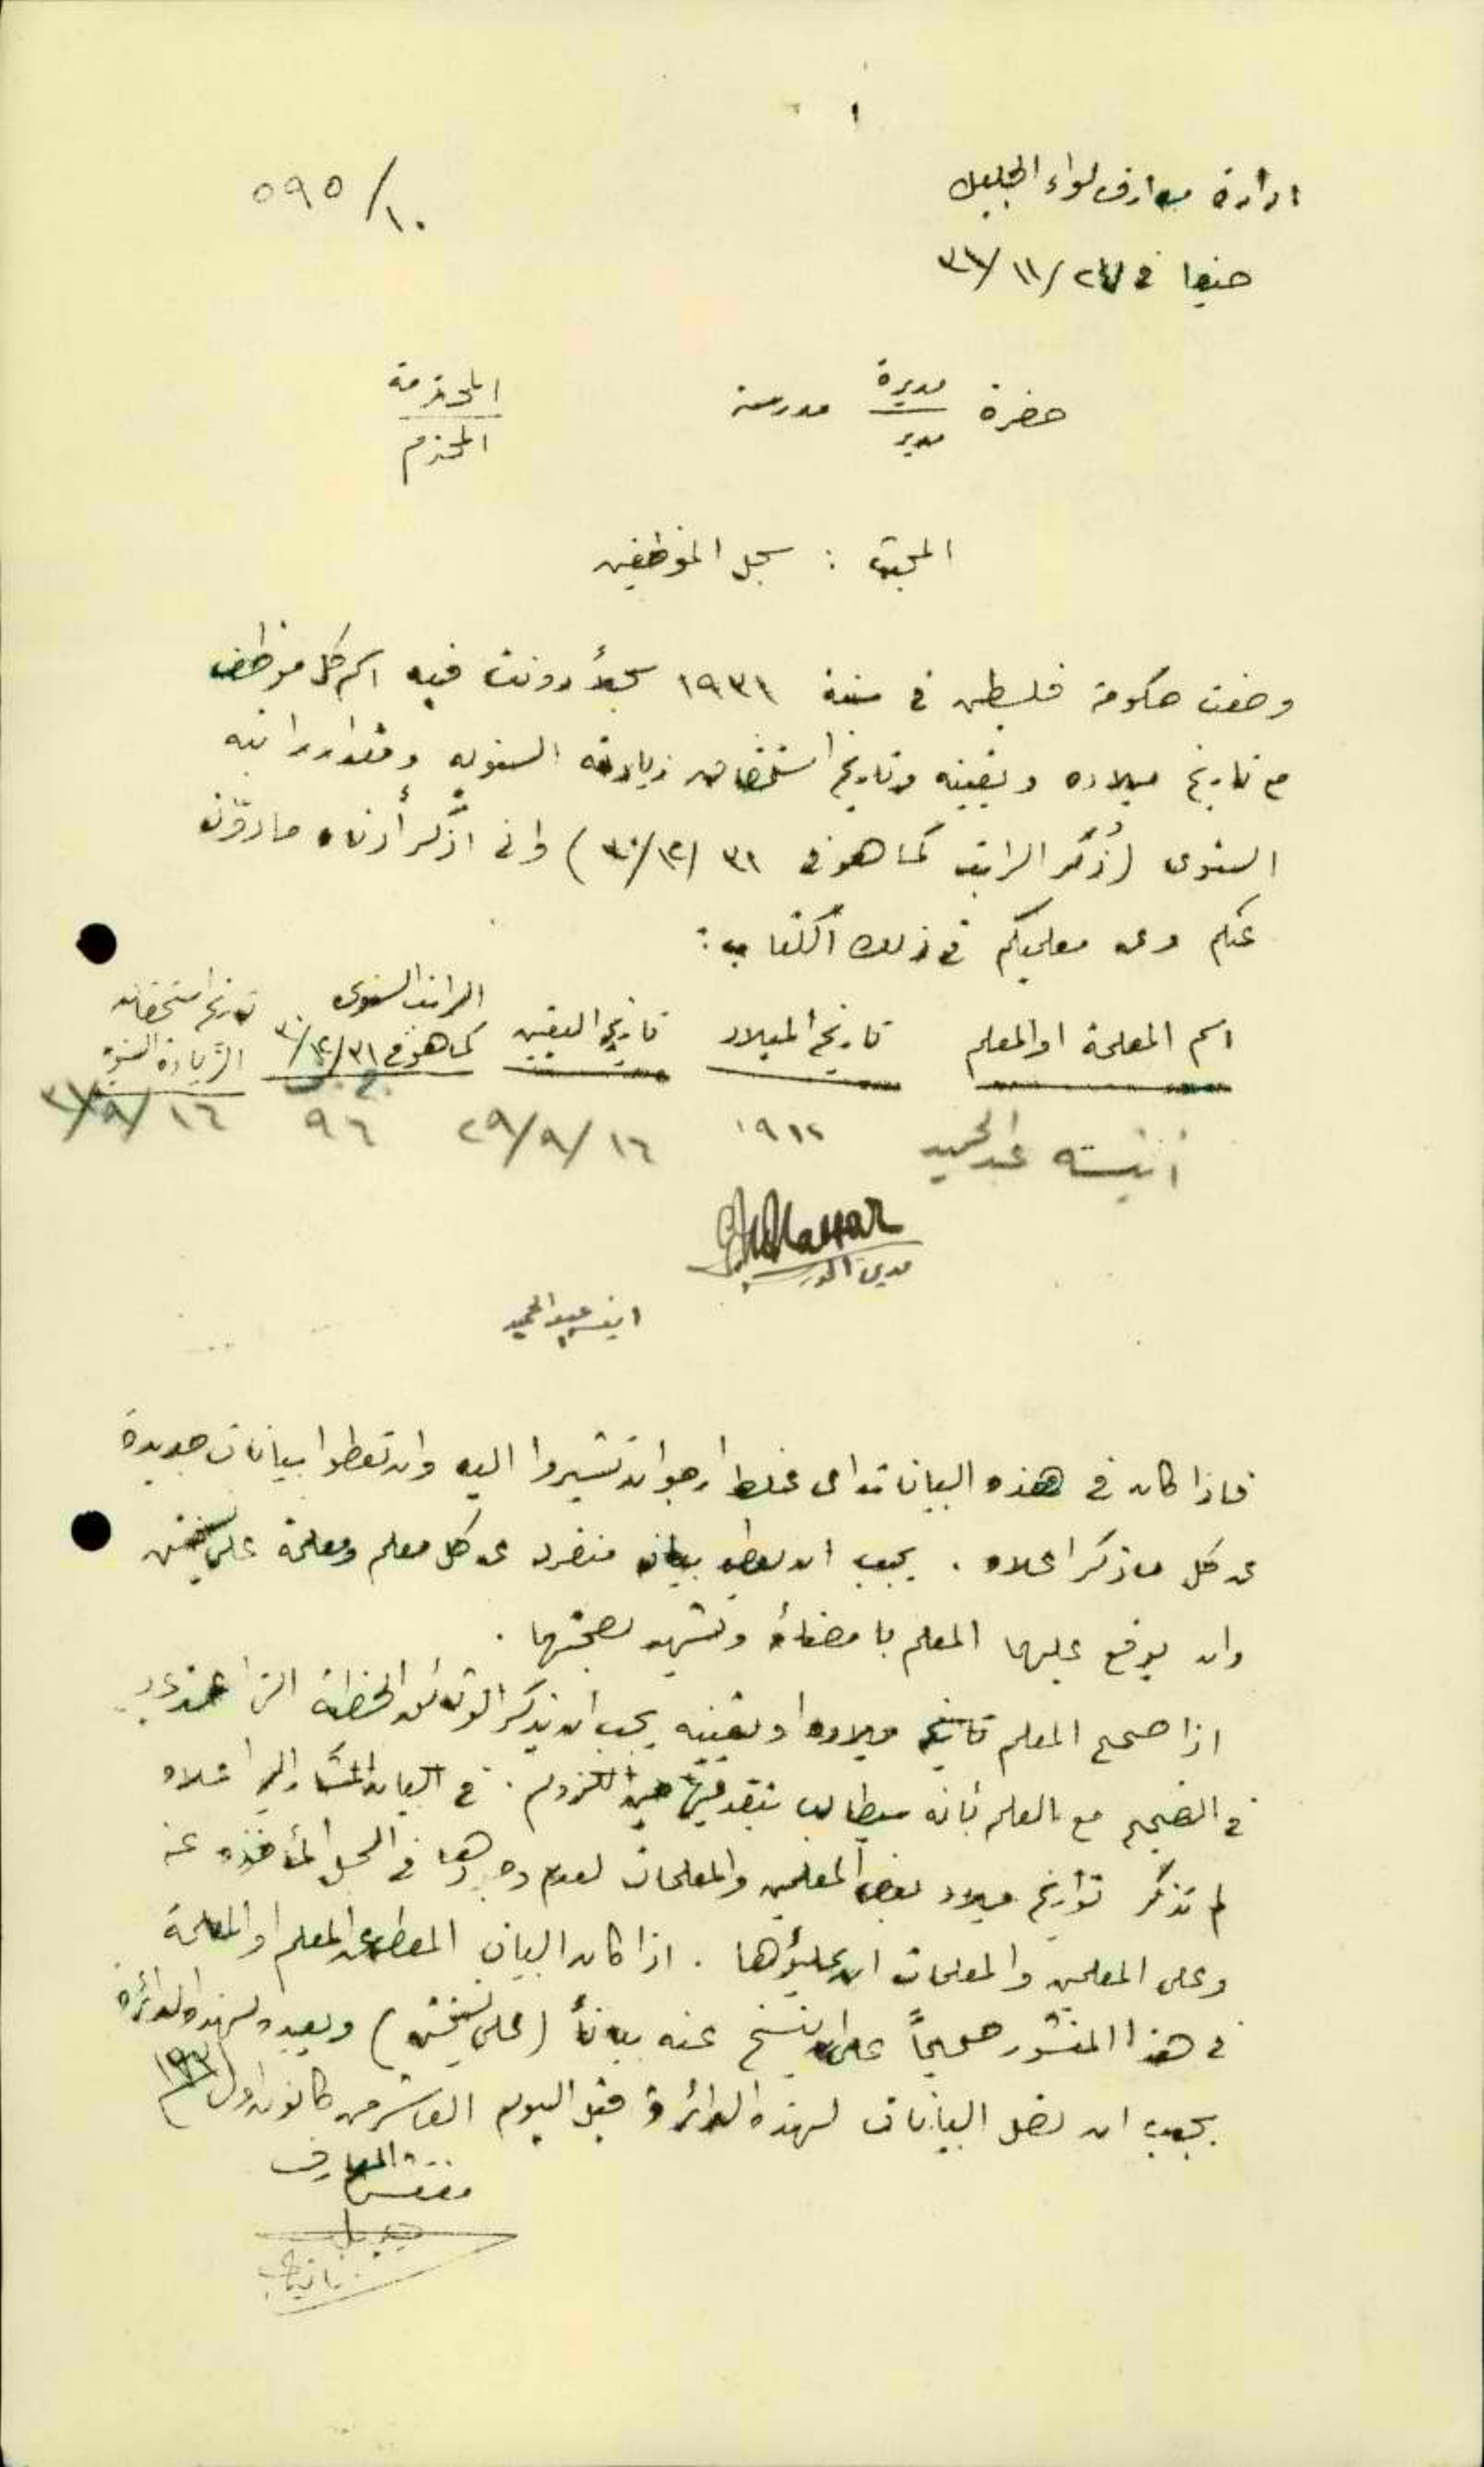 ١
ادارة معارف لواء الجليل
١٠/٥٩٥
حيفا في ٢٤/١١/٣١
حضرة مديرة مدرسة المحترمة
مدير المحترم
المبحث : سجل الموظفين
وضعت حكومة فلسطين في سنة ١٩٣١ سجلاً دونت فيه اسم كل موظف
مع تاريخ ميلاده وتعيينه وتاريخ استحقاق زيادته السنويه ومقدار راتبه
السنوى (ذُكر الراتب كما هو في ٣١/١٢/٣٠) وانى اذكر أدناه ما دوّن
عنكم وعن معلميكم في ذلك الكتاب :
اسم المعلمة او المعلم تاريخ الميلاد تاريخ التعيين الراتب السنوى كما هو في ٣١/١٢/٣٠ تاريخ استحقاق الزيادة السنوية
أنيسه عبد الحميد ١٩١٢ ١٦/٩/٢٩ ٩٦ ١٦/٩/٣١
مديرة المدرسة
انيسه عبد الحميد
فاذا كان في هذه البيانات اى غلط ارجو ان تشيروا اليه وان تعطوا بيانات جديدة
عن كل ما ذكر اعلاه . يجب ان يعطى بيان منفرد عن كل معلم ومعلمة على نسختين
وان يوقع عليها المعلم بامضائه وتشهد بصحتها .
اذا صحح المعلم تاريخ ميلاده او تعيينه يجب ان يذكر الوثائق الخطية التى اعتمد عليها
في التصحيح مع العلم بأنه سيطالب بتقديمها حين اللزوم . في البيان المشار اليه اعلاه
لم تذكر تواريخ ميلاد بعض المعلمين والمعلمات لعدم وجودها في السجل المأخوذه عنه
وعلى المعلمين والمعلمات ان يملؤها . اذا كان البيان المعطى عن المعلم او المعلمة
في هذا المنشور صحيحاً على ان ينسخ عنه بياناً (على نسختين) ويعيده لهذه الدائرة
يجب ان تصل البيانات لهذه الدائرة قبل اليوم العاشر من كانون اول ١٩٣١
مفتش المعارف